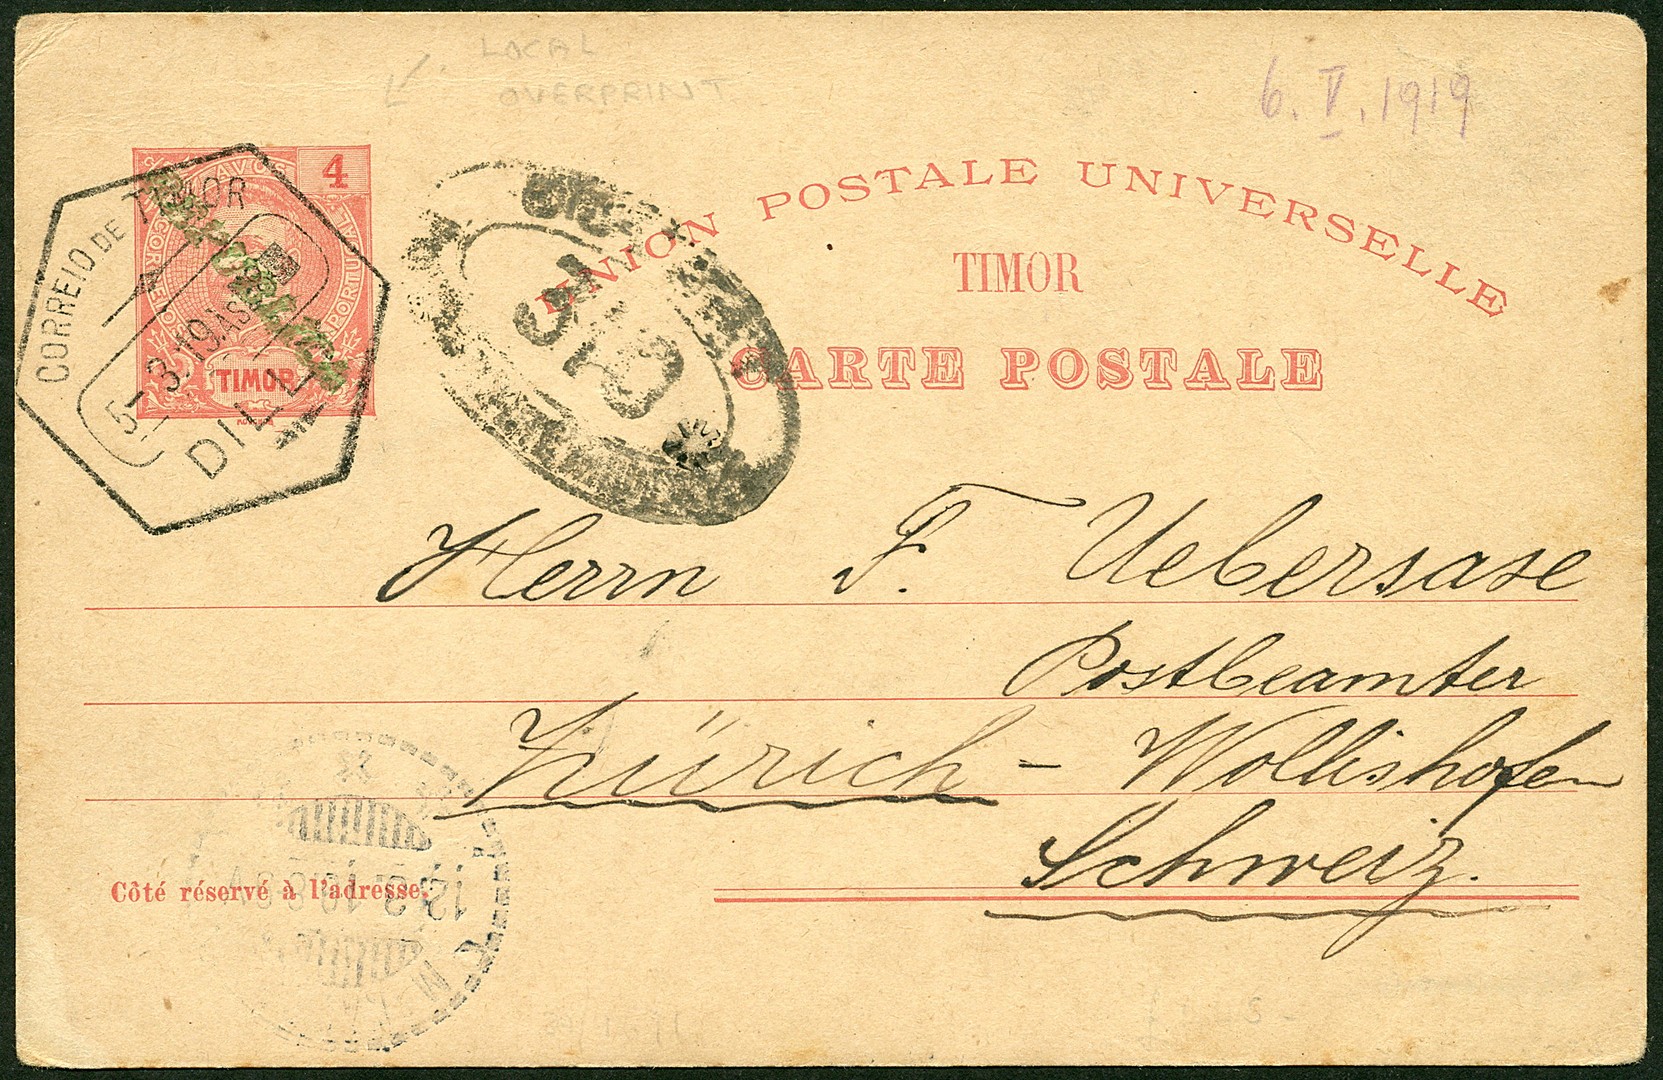 LOCAL
OVERPRINT
6. V. 1919
4
AVOS
CORREIOS
PORTUGAL
TIMOR
CORREIO DE TIMOR
5- 3 19
DILLY
UNION POSTALE UNIVERSELLE
TIMOR
CARTE POSTALE
Herrn F. Uebersase
Postbeamter
Zürich - Wollishofen
Schweiz.
Côté réservé à l'adresse.